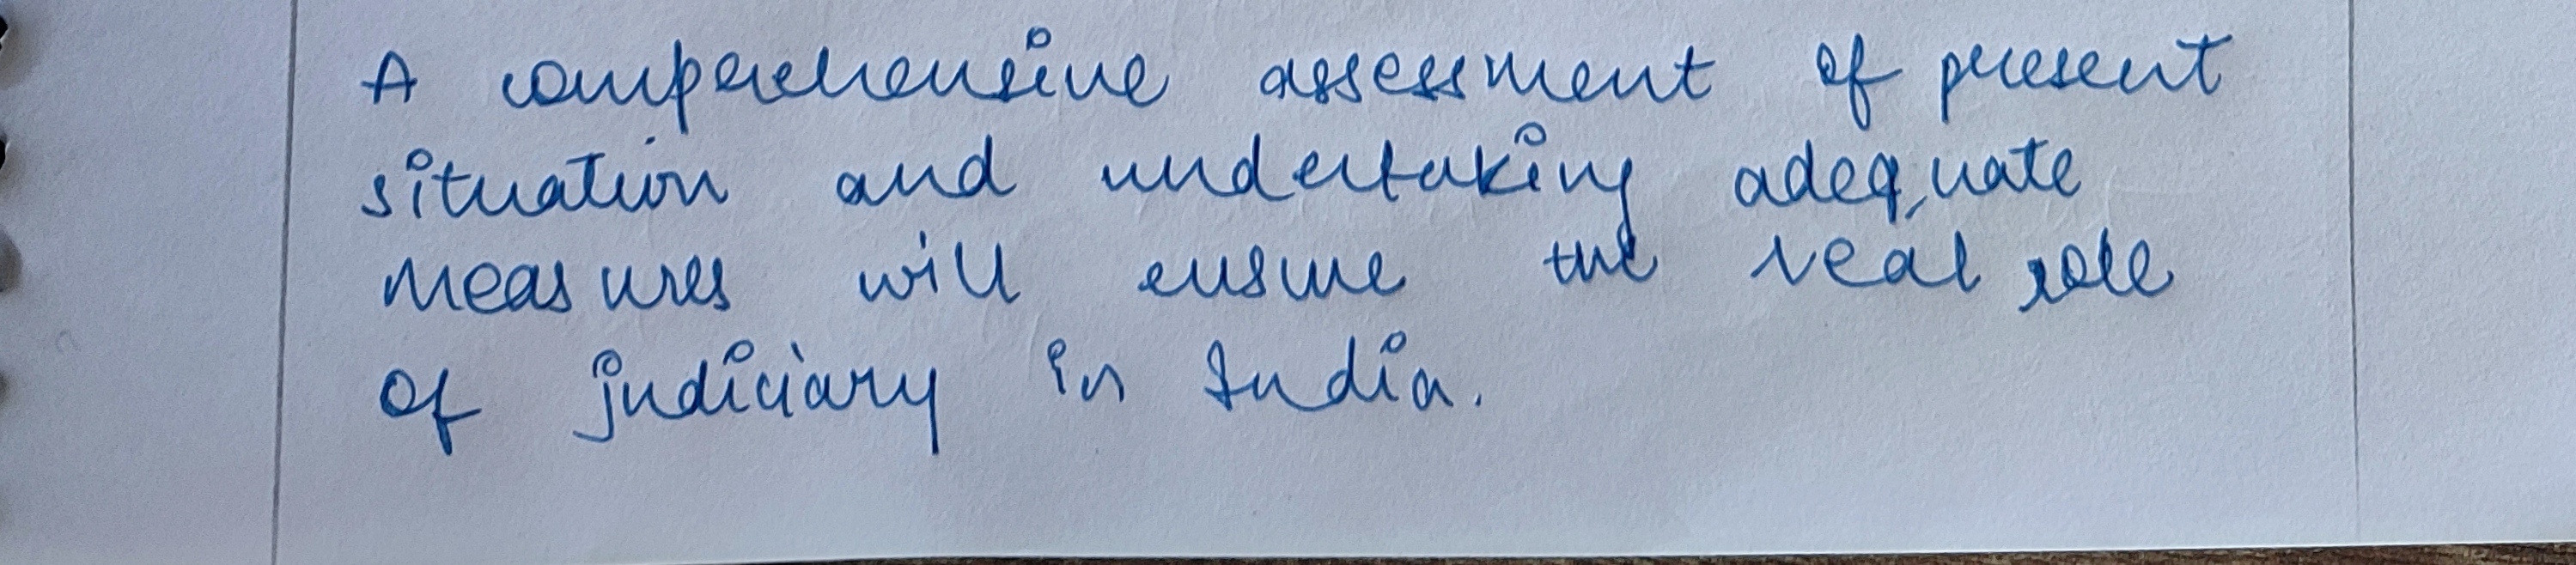 A comprehensive assessment of present
situation and undertaking adequate
measures will ensure the real role
of judiciary in India.